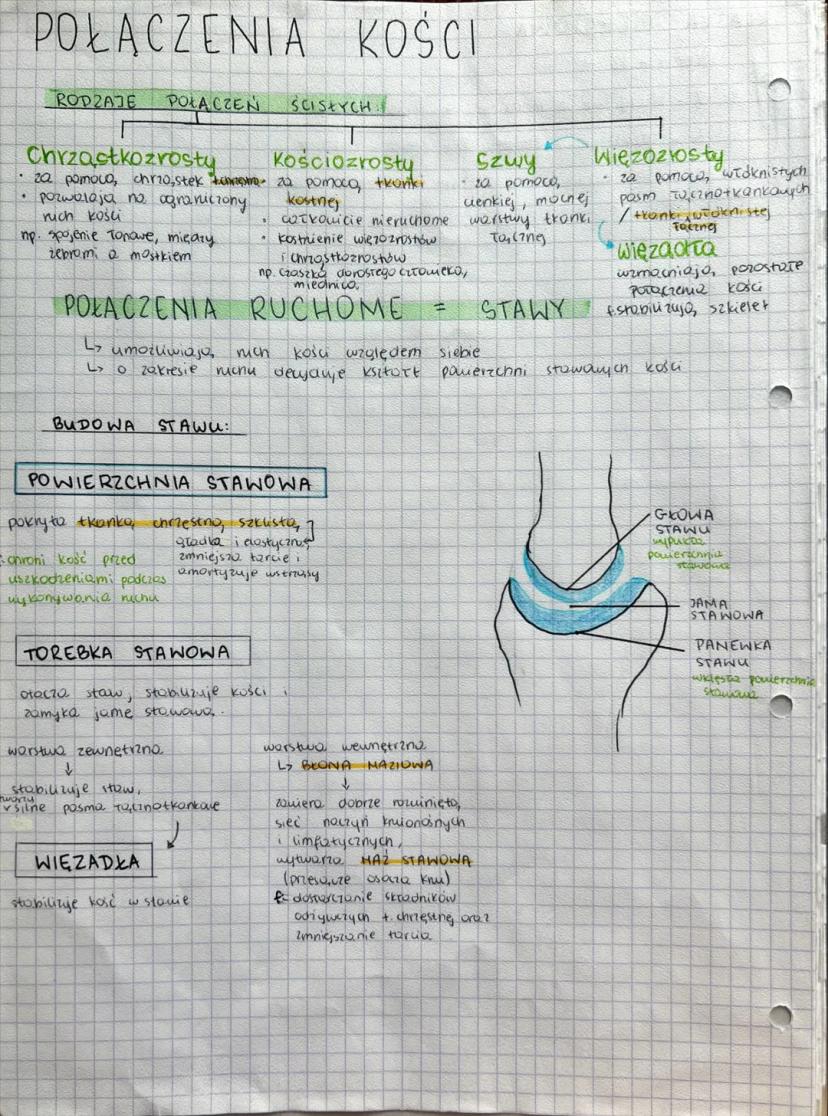 POŁĄCZENIA KOŚCI
RODZAJE POŁĄCZEŃ ŚCISŁYCH:
Chrząstkozrosty
• za pomocą chrząstek
• pozwalają na ograniczony
ruch kości
np. spojenie łonowe, między
żebrami a mostkiem
Kościozrosty
• za pomocą tkanki
kostnej
• całkowicie nieruchome
• kostnienie więzozrostów
i chrząstkozrostów
np. czaszka dorosłego człowieka,
miednica
Szwy
• za pomocą
cienkiej, mocnej
warstwy tkanki
łącznej
Więzozrosty
• za pomocą włóknistych
pasm łącznotkankowych
/ tkanki włóknistej
łącznej
więzadła
wzmacniają pozostałe
połączenia kości
stabilizują szkielet
POŁĄCZENIA RUCHOME = STAWY
↳ umożliwiają ruch kości względem siebie
↳ o zakresie ruchu decyduje kształt powierzchni stawowych kości
BUDOWA STAWU:
POWIERZCHNIA STAWOWA
pokryta tkanką chrzęstną szklistą
gładka i elastyczna
zmniejsza tarcie i
amortyzuje wstrząsy
chroni kość przed
uszkodzeniami podczas
wykonywania ruchu
GŁOWA
STAWU
wypukła
powierzchnia
stawowa
JAMA
STAWOWA
PANEWKA
STAWU
wklęsła powierzchnia
stawowa
TOREBKA STAWOWA
otacza staw, stabilizuje kości i
zamyka jamę stawową.
warstwa zewnętrzna
↓
stabilizuje staw,
tworzy
silne pasma łącznotkankowe
WIĘZADŁA
stabilizuje kość w stawie
warstwa wewnętrzna
↳ BŁONA MAZIOWA
↓
zawiera dobrze rozwiniętą
sieć naczyń krwionośnych
i limfatycznych,
wytwarza MAŹ STAWOWĄ
(przesącze osocza krwi)
dostarczanie składników
odżywczych t. chrzęstnej oraz
zmniejszanie tarcia